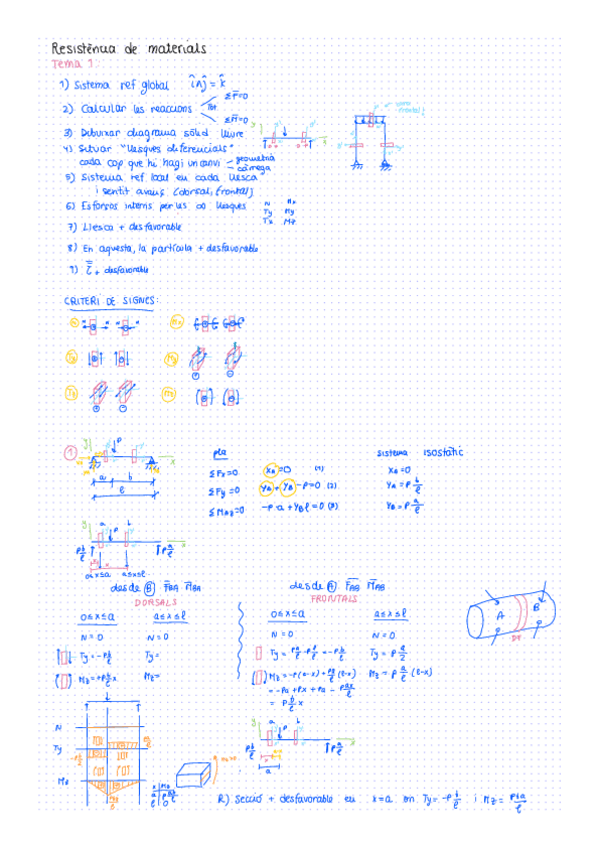 Resistència de materials
Tema 1:
1) Sistema ref global
2) Calcular les reaccions
Tot
ΣF=0
ΣM=0
3) Dibuixar diagrama sòlid lliure
4) Situar "llesques diferencials"
cada cop que hi hagi un canvi
geometria
càrrega
5) Sistema ref local en cada llesca
i sentit avanç (dorsal, frontal)
6) Esforços interns per les llesques
N Mx
Ty My
Tz Mz
7) Llesca + desfavorable
8) En aquesta, la partícula + desfavorable
9) + desfavorable
CRITERI DE SIGNES:
N Mx
Ty My
Tz Mz
1
pla
sistema isostàtic
ΣFx=0
xA=0 (1)
xA=0
ΣFy=0
yA+yB-P=0 (2)
yA=P b/l
ΣMAz=0
-P·a+yB l=0 (3)
yB=P a/l
0≤x≤a a≤x≤l
desde B FBA MBA
DORSALS
0≤x≤a a≤x≤l
N=0 N=0
Ty=-P b/l Ty=
Mz=+P b/l x Mz=
desde A FAB MAB
FRONTALS
0≤x≤a a≤x≤l
N=0 N=0
Mz=-P(a-x)+P a/l (l-x)
Mz=P a/l (l-x)
=-Pa+Px+Pa-Pax/l
=P b/l x
A B
N
Ty
Mz
R) Secció + desfavorable en x=a on Ty=-P b/l i Mz=Pba/l